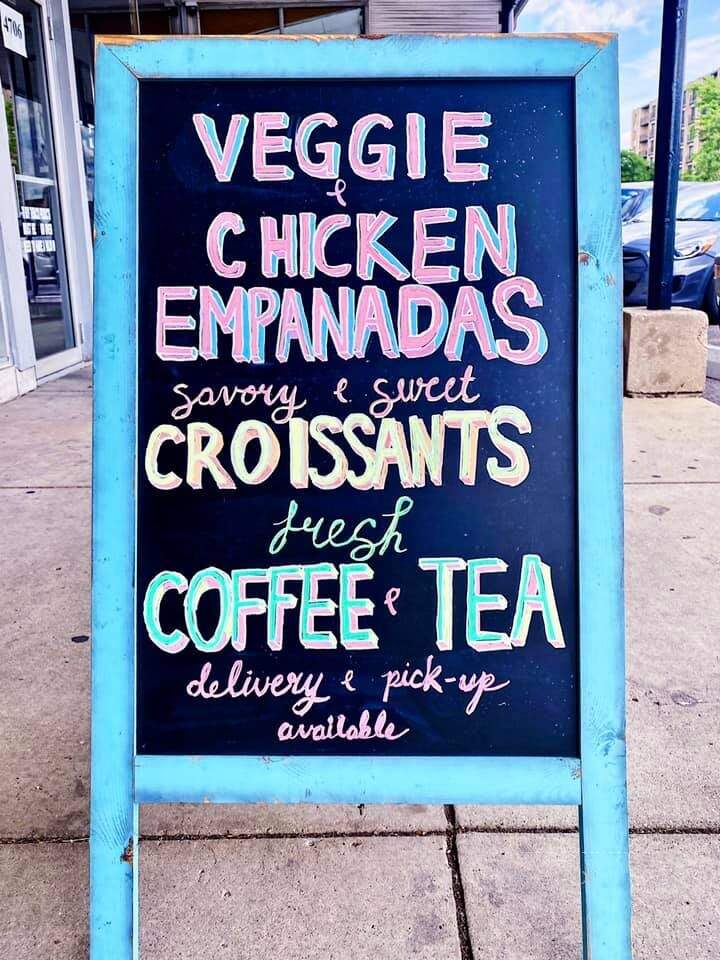 4706
VEGGIE
&
CHICKEN
EMPANADAS
savory & sweet
CROISSANTS
fresh
COFFEE & TEA
delivery & pick-up
available